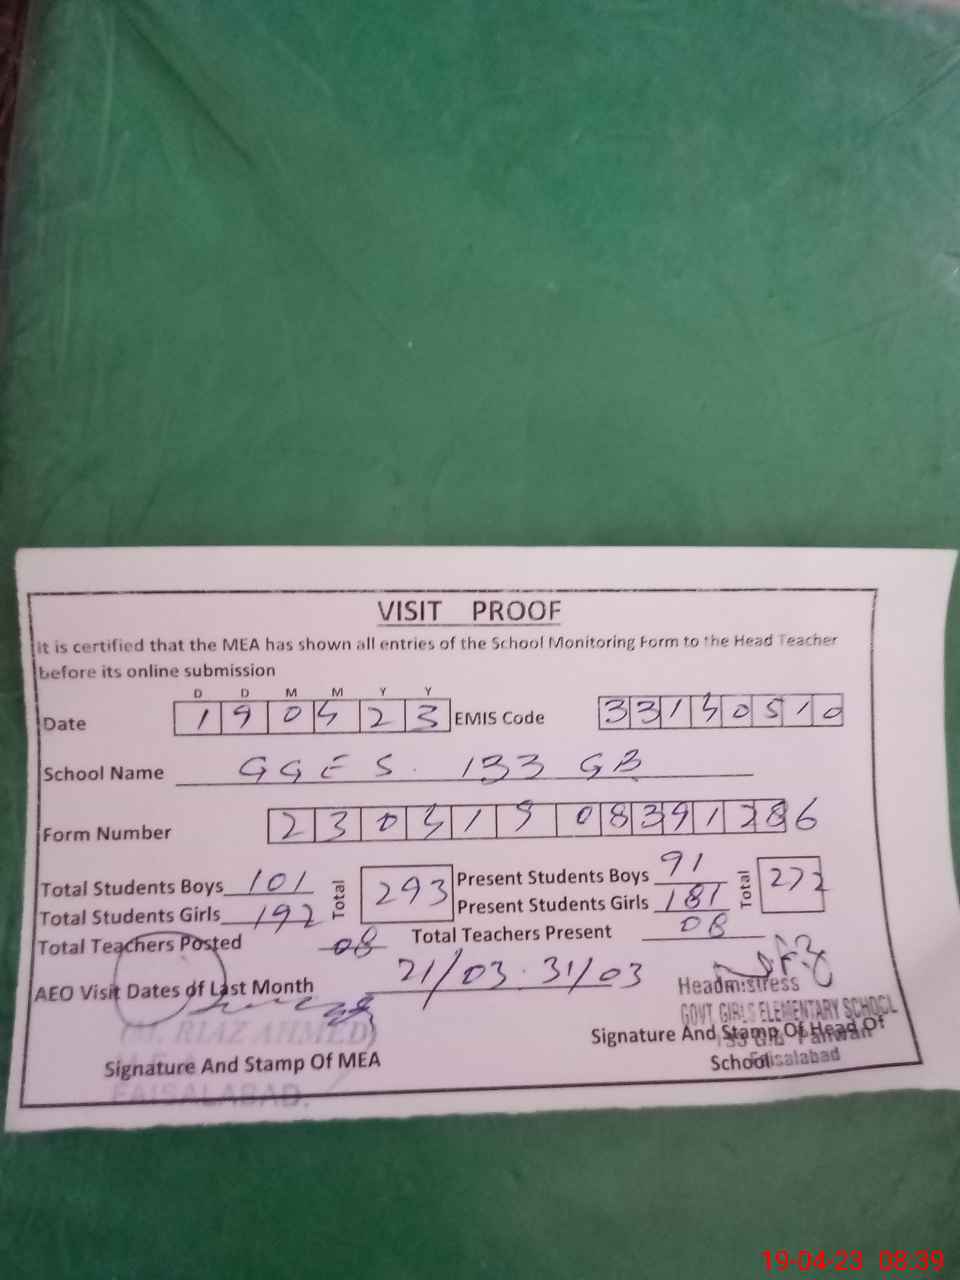 VISIT PROOF
It is certified that the MEA has shown all entries of the School Monitoring Form to the Head Teacher
before its online submission
D D M M Y Y
Date 190423 EMIS Code 33140510
School Name GGES. 133 GB
Form Number 23041908391286
Total Students Boys 101 Total 293 Present Students Boys 91 Total 272
Total Students Girls 192 Present Students Girls 181
Total Teachers Posted 08 Total Teachers Present 08
AEO Visit Dates of Last Month 21/03. 31/03
Headmistress
GOVT GIRLS ELEMENTARY SCHOOL
(M. RIAZ AHMED)
Signature And Stamp Of MEA
Signature And Stamp Of Head Of
School
Faisalabad
FAISALABAD.
19-04-23 08:39